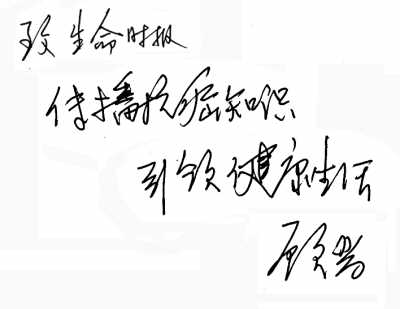 致生命时报
传播抗癌知识
引领健康生活
顾晋